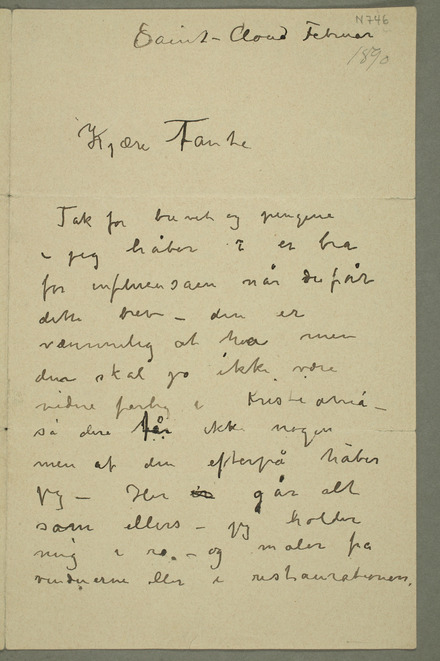 N 746
Saint-Cloud Februar
1890
Kjære Tante
Tak for brevet og pengene
– jeg håber I er bra
for influensaen når De får
dette brev – den er
væmmelig at ha men
den skal jo ikke være
videre farlig i Kristiania –
så dere får ikke nogen
men af den efterpå håber
jeg – Her går alt
som ellers – jeg holder
mig i ro – og maler fra
vinduerne eller i restaurationen.